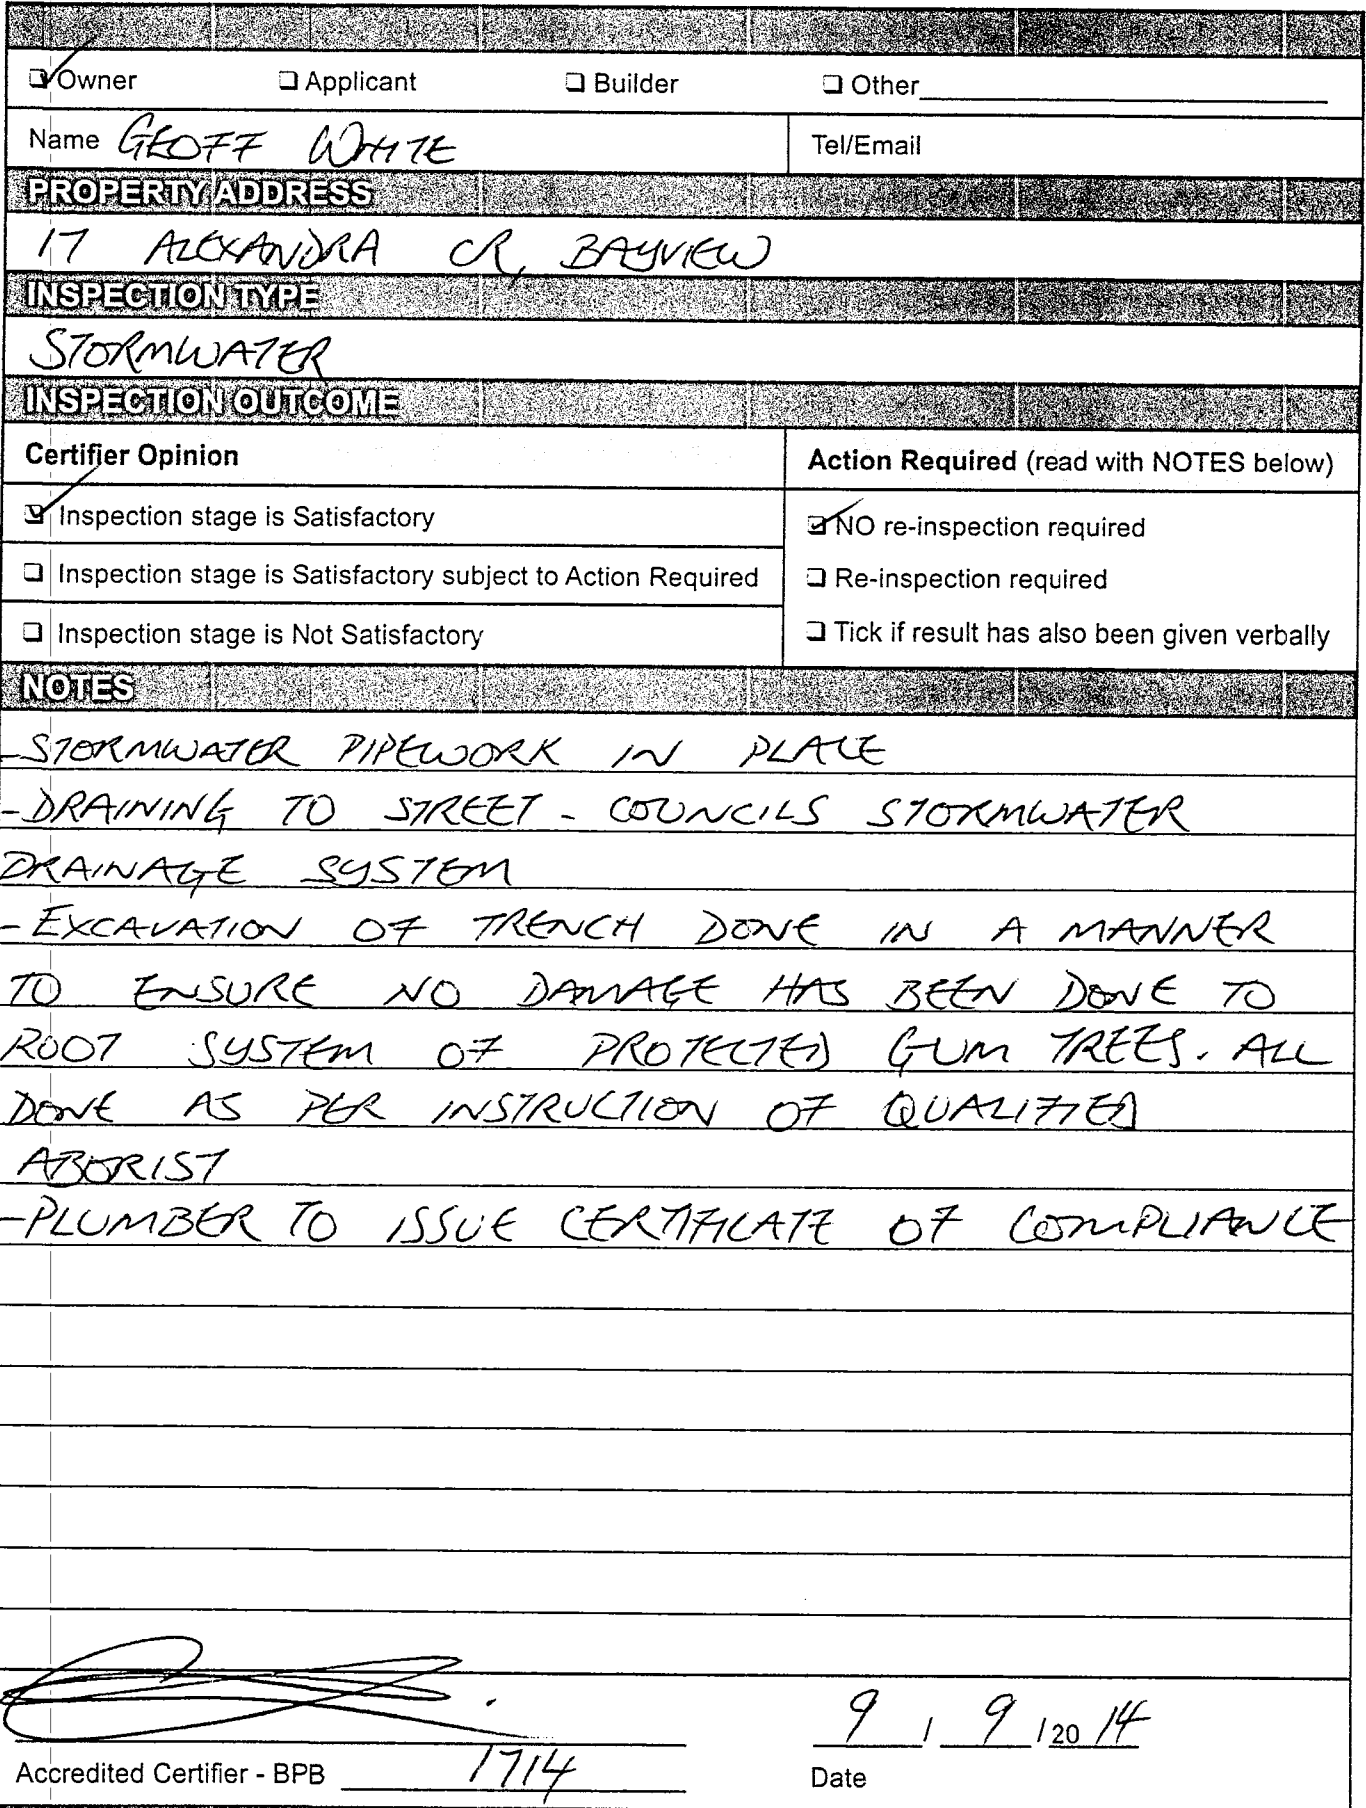 Owner Applicant Builder Other
Name GEOFF WHITE Tel/Email
PROPERTY ADDRESS
17 ALEXANDRA CR, BAYVIEW
INSPECTION TYPE
STORMWATER
INSPECTION OUTCOME
Certifier Opinion Action Required (read with NOTES below)
Inspection stage is Satisfactory NO re-inspection required
Inspection stage is Satisfactory subject to Action Required Re-inspection required
Inspection stage is Not Satisfactory Tick if result has also been given verbally
NOTES
-STORMWATER PIPEWORK IN PLACE
-DRAINING TO STREET - COUNCILS STORMWATER
DRAINAGE SYSTEM
-EXCAVATION OF TRENCH DONE IN A MANNER
TO ENSURE NO DAMAGE HAS BEEN DONE TO
ROOT SYSTEM OF PROTECTED GUM TREES. ALL
DONE AS PER INSTRUCTION OF QUALIFIED
ABORIST
-PLUMBER TO ISSUE CERTIFICATE OF COMPLIANCE
9 / 9 /20 14
Accredited Certifier - BPB 1714 Date